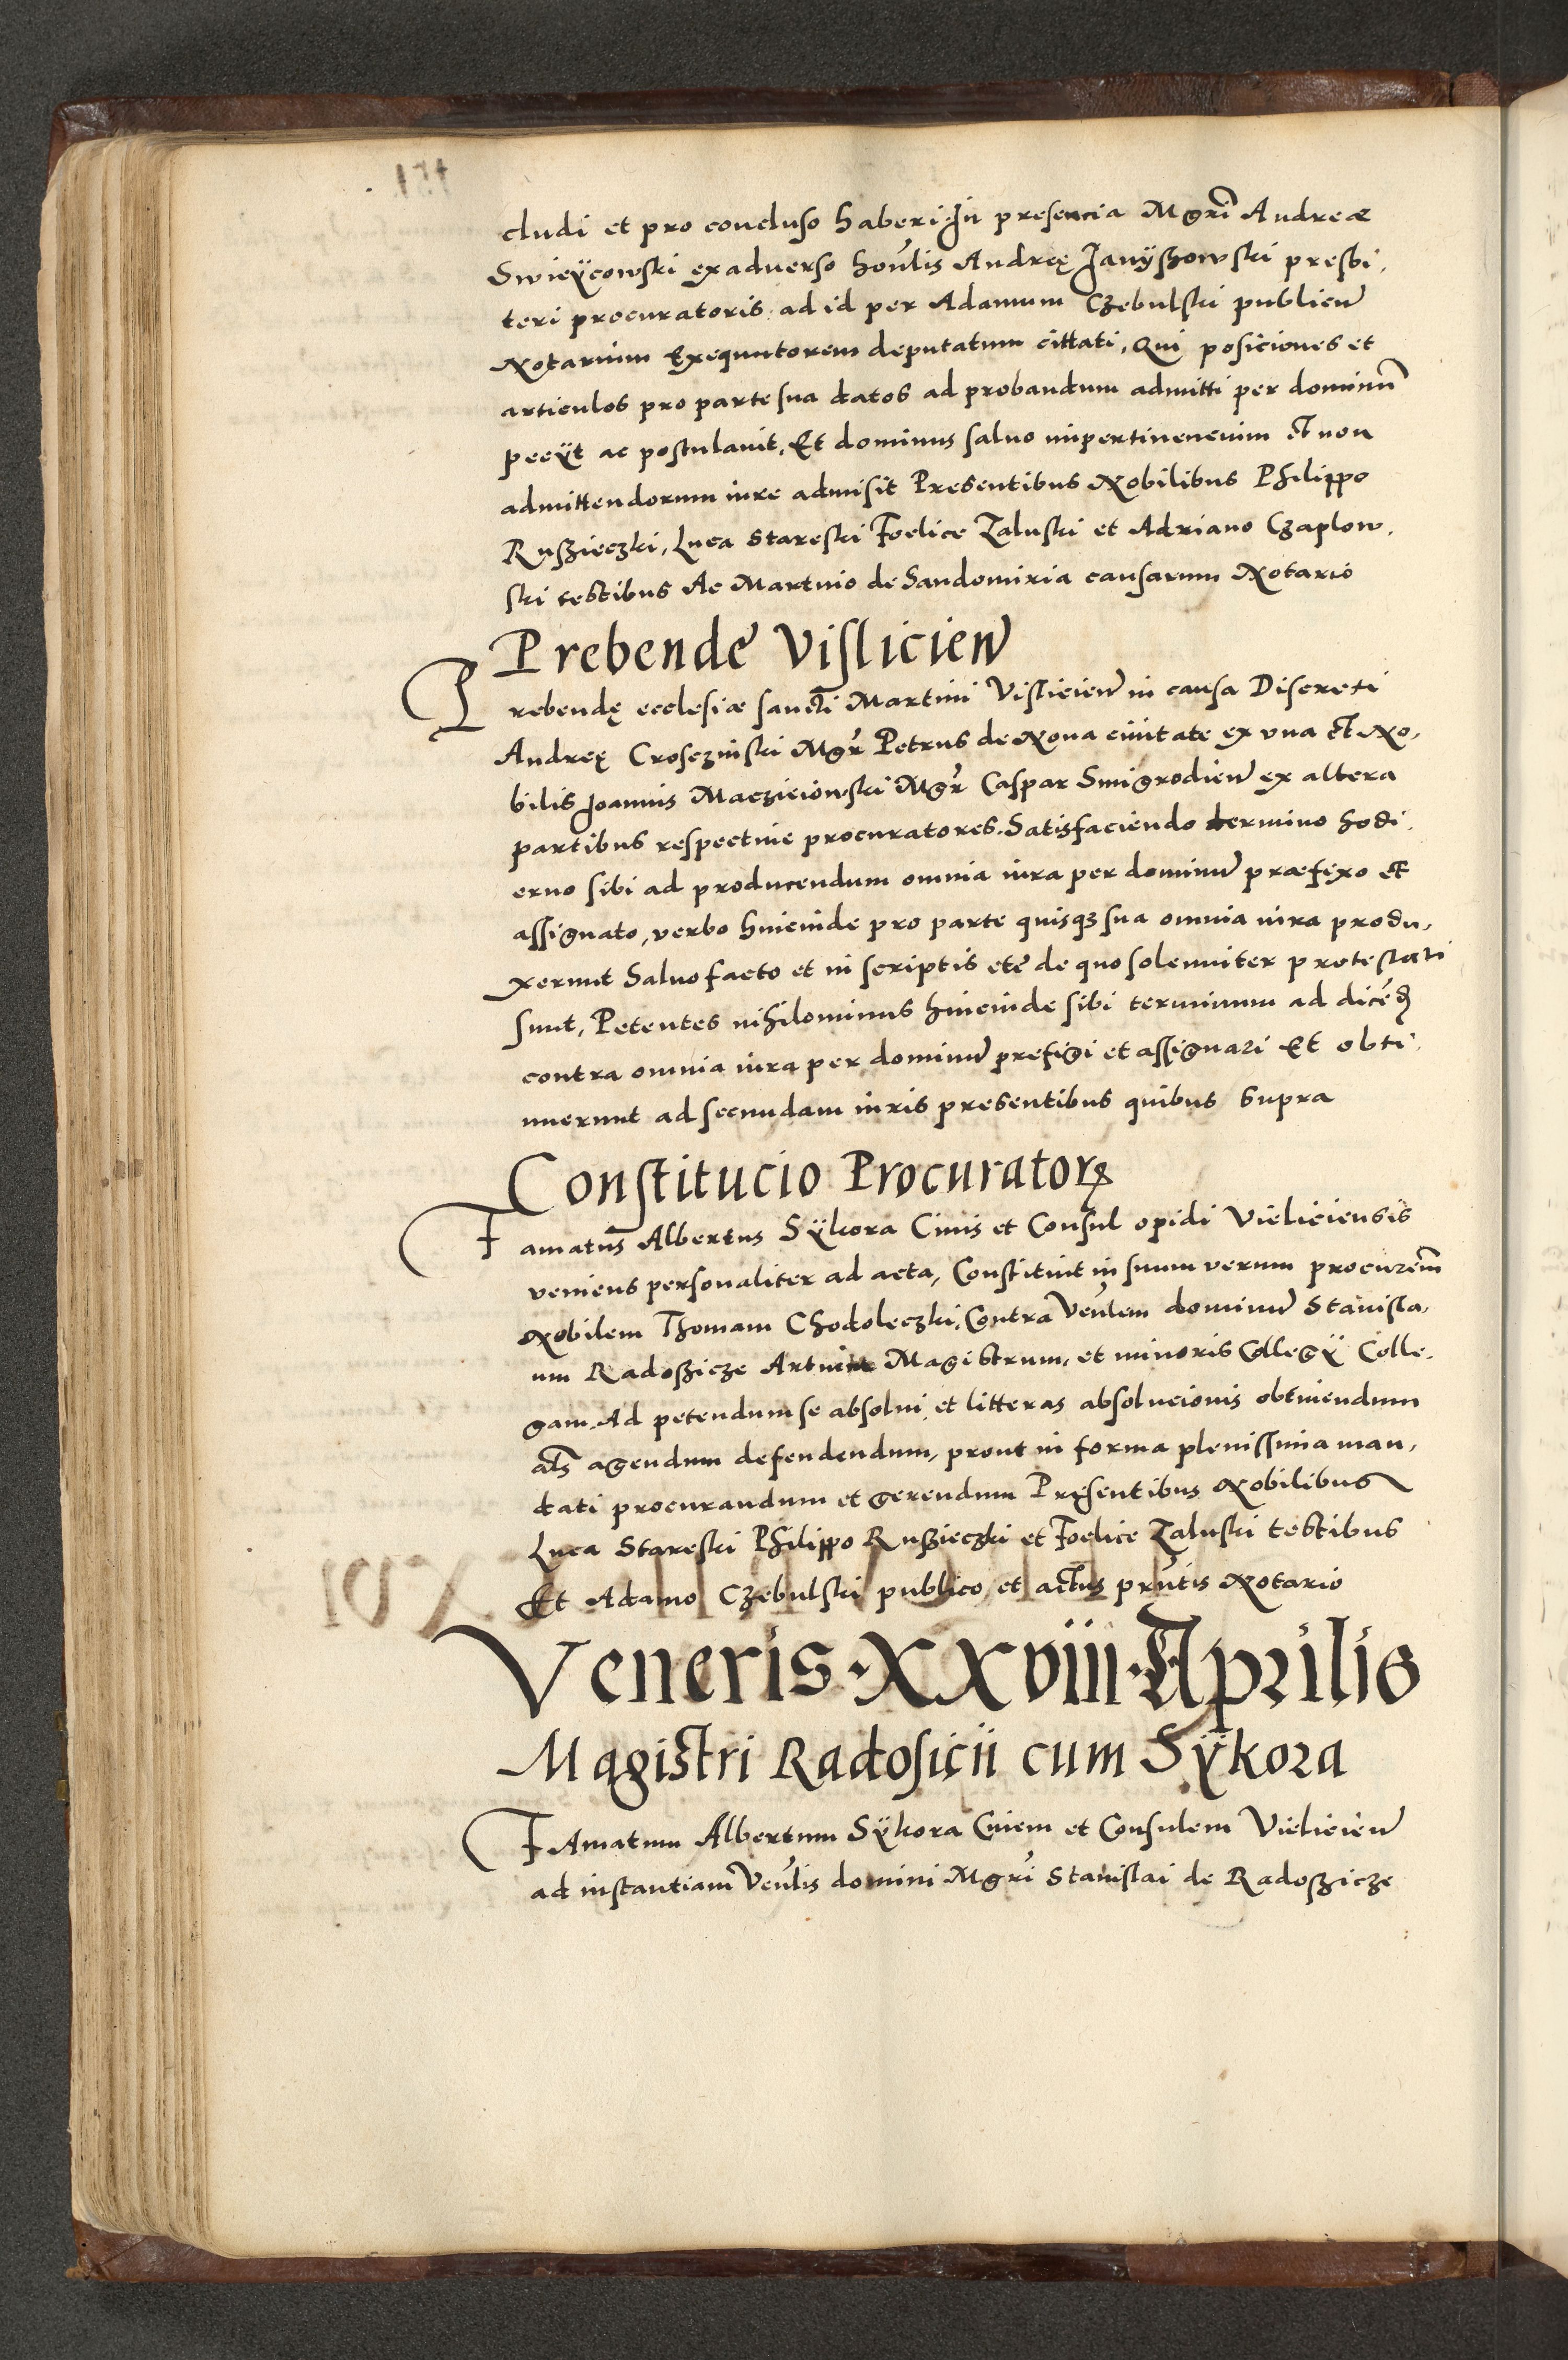 cludi et pro concluso haberi. In presencia Mgri Andreæ
Swieÿcowski ex adverso honlis Andreę Janÿszowski presbi,
teri procuratoris ad id per Adamum Czebulski publicum
Notarium Exequutorem deputatum cittati, Qui posiciones et
articulos pro parte sua datos ad probandum admitti per dominum
peeÿt ac postulavit, Et dominus salvo impertinencium et non
admittendorum iure admisit Presentibus Nobilibus Philippo
Ruszieczki, Luca Stareski Foelice Zaluski et Adriano Czaplow,
ski testibus Ac Martino de Sandomiria causarum Notario
Prebende Vislicien
Prebendę ecclesiæ sancti Martini Vislicien in causa Discreti
Andreę Crosczinski Mgr Petrus de Nova civitate ex una et No,
bilis Joannis Macziciowski Mgr Caspar Smigrodien ex altera
partibus respective procuratores. Satisfaciendo termino hodi,
erno sibi ad producendum omnia iura per dominum præfixo et
assignato, verbo hincinde pro parte quisq; sua omnia iura produ,
xerunt Salvo facto et in scriptis etc de quo solenniter protestati
sunt, Petentes nihilominus hincinde sibi terminum ad dicend
contra omnia iura per dominum prefigi et assignari Et obti,
nuerunt ad secundam iuris presentibus quibus supra
Constitucio Procurator
Famatus Albertus Sÿkora Civis et Consul opidi Vieliciensis
veniens personaliter ad acta, Constituit in suum verum procurem
Nobilem Thomam Chodoleczki, Contra Venlem dominum Stanisla,
um Radoszicze Artium Magistrum, et minoris Collegÿ Colle,
gam. Ad petendum se absolvi et litteras absolucionis obtinendum
als agendum defendendum, prout in forma plenissima man,
dati procurandum et gerendum Pręsentibus Nobilibus
Luca Stareski Philippo Ruszieczki et Foelice Zaluski testibus
Et Adamo Czebulski publico et actus prntis Notario
Veneris · XXVIII · Aprilis
Magistri Radosicii cum Sÿkora
FAmatum Albertum Sÿkora Civem et Consulem Vielicien
ad instantiam Venlis domini Mgri Stanislai de Radoszicze